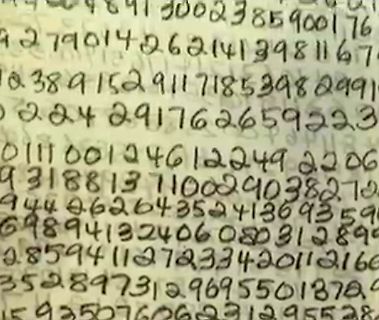 913002385900176
2790142621413981167
0238915291171853982991
0224291762659223
01110012461224922 06
9318813710029038272
944262643524136935
69894132406080312899
2859441127233420112166
352897312969550137 2
593507606231295528